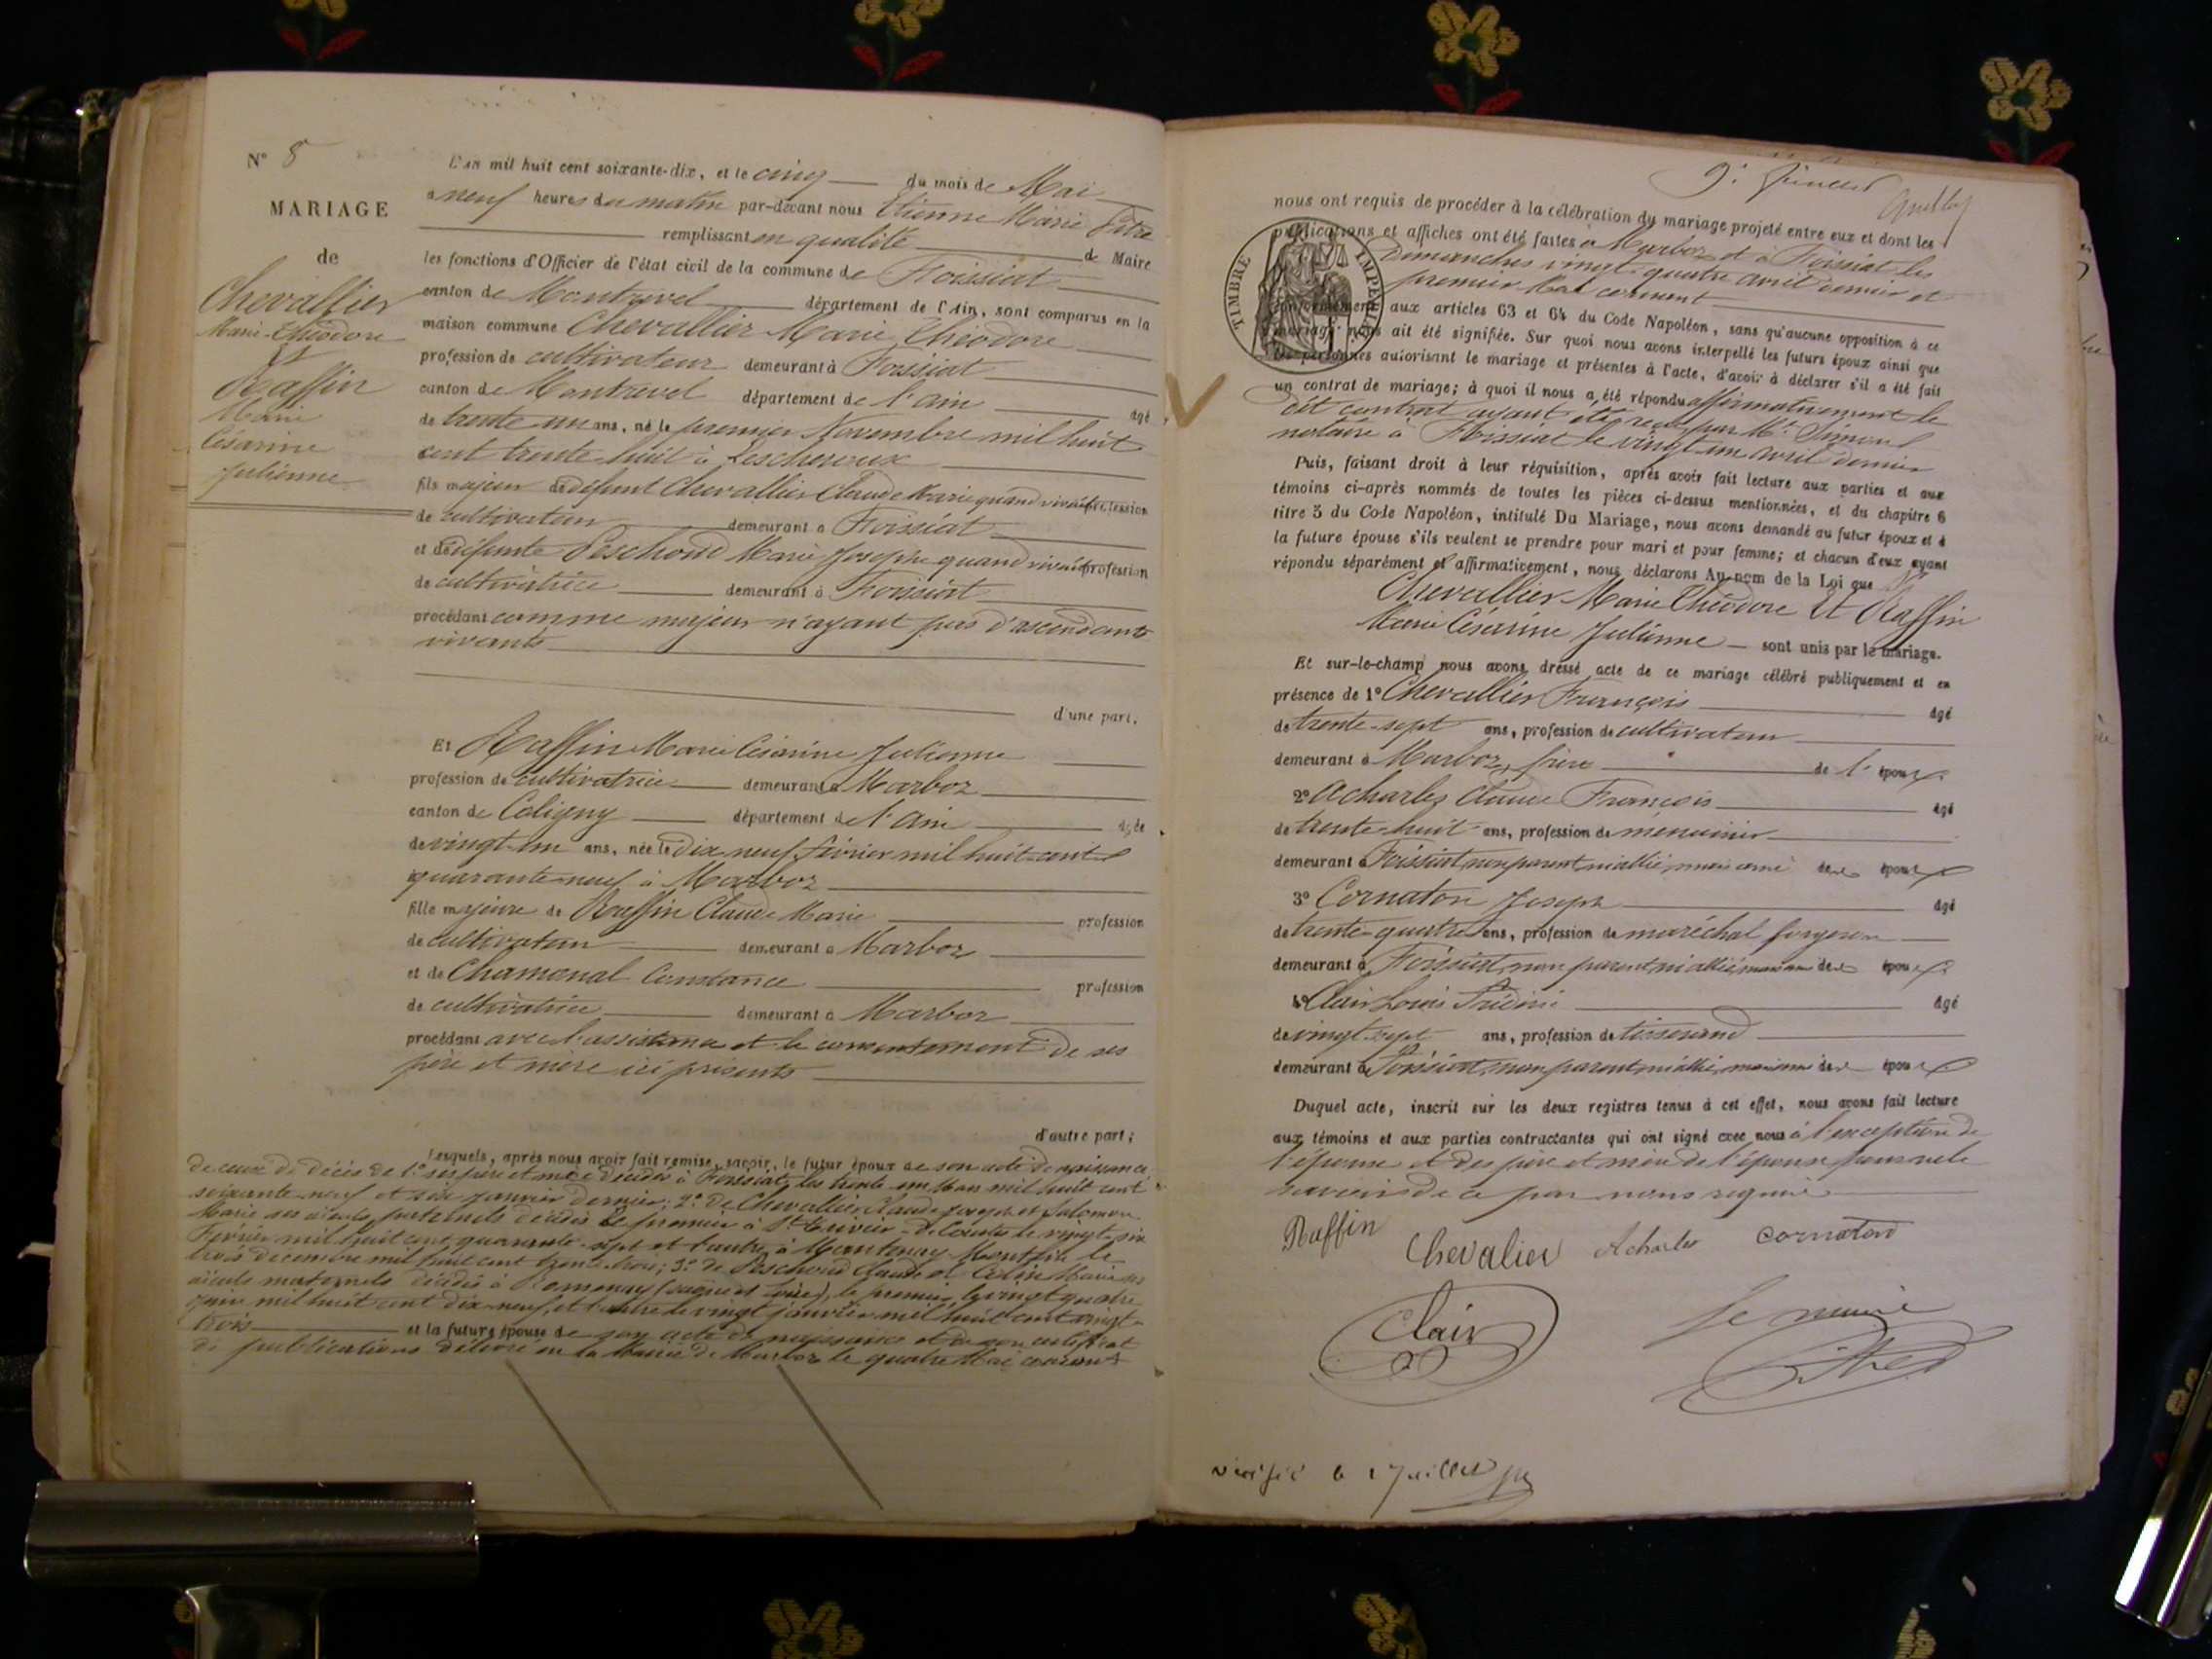 N° 8
MARIAGE
de
Chevallier
Marie-Théodore
Et
Raffin
Marie
Césarine
Julienne
L'an mil huit cent soixante-dix, et le cinq du mois de Mai
a neuf heures du matin par-devant nous Etienne Marie Pitre
remplissant en qualité de Maire
les fonctions d'Officier de l'état civil de la commune de Foissiat
canton de Montrevel département de l'Ain, sont comparus en la
maison commune Chevallier Marie Théodore
profession de cultivateur demeurant à Foissiat
canton de Montrevel département de l'ain agé
de trente un ans, né le premier Novembre mil huit
cent trente huit à Lescheroux
fils majeur de défunt Chevallier Claude Marie quand vivait profession
de cultivateur demeurant a Foissiat
et de défunte Peschoud Marie Josephe quand vivait profession
de cultivatrice demeurant à Foissiat
procédant comme majeur n'ayant pas d'ascendants
vivants
d'une part,
Et Raffin Marie Césarine Julienne
profession de cultivatrice demeurant a Marboz
canton de Coligny département de l'Ain agée
de vingt-un ans, née le Dix neuf février mil huit cent
quarante neuf à Marboz
fille majeure de Raffin Claude Marie profession
de cultivateur demeurant a Marboz
et de Chamonal Constance profession
de cultivatrice demeurant a Marboz
procédant avec l'assistance et le consentement de ses
père et mère ici présents
d'autre part;
Lesquels, après nous avoir fait remise, savoir, le futur époux de son acte de naissance
de ceux de décès de 1° ses père et mère décédés à Foissiat les trente un Mars mil huit cent
soixante neuf et six janvier dernier; 2° de Chevallier Claude Joseph et Salomon
Marie ses aïeuls paternels décédés le premier à St Trivier-de-Courtes le vingt-six
Février mil huit cent quarante-sept et l'autre à Mantenay Montlin le
trois décembre mil huit cent trente trois; 3° de Peschoud Claude et Marie ses
aïeuls maternels décédés à Romenay (saône et Loire), le premier le vingt quatre
juin mil huit cent dix-neuf, et l'autre le vingt janvier mil huit cent vingt-
trois et la future épouse de son acte de naissance et de son certificat
de publications délivré en la Mairie de Marboz le quatre Mai courant
nous ont requis de procéder à la célébration du mariage projeté entre eux et dont les
publications et affiches ont été faites à Marboz et à Foissiat les
Dimanches vingt-quatre avril dernier et
premier Mai courant
TIMBRE IMPERIAL
conformément aux articles 63 et 64 du Code Napoléon, sans qu'aucune opposition à ce
mariage nous ait été signifiée. Sur quoi nous avons interpellé les futurs époux ainsi que
les personnes autorisant le mariage et présentes à l'acte, d'avoir à déclarer s'il a été fait
un contrat de mariage; à quoi il nous a été répondu affirmativement le
dit contrat ayant été reçu par Me Simon
notaire à Foissiat le vingt un avril dernier
Puis, faisant droit à leur réquisition, après avoir fait lecture aux parties et aux
témoins ci-après nommés de toutes les pièces ci-dessus mentionnées, et du chapitre 6
titre 5 du Code Napoléon, intitulé Du Mariage, nous avons demandé au futur époux et à
la future épouse s'ils veulent se prendre pour mari et pour femme; et chacun d'eux ayant
répondu séparément et affirmativement, nous déclarons Au nom de la Loi que
Chevallier Marie Théodore Et Raffin
Marie Césarine Julienne sont unis par le mariage.
Et sur-le-champ nous avons dressé acte de ce mariage célébré publiquement et en
présence de 1° Chevallier François agé
de trente-sept ans, profession de cultivateur
demeurant à Marboz, frère de l' époux
2° Acharles Claude François agé
de trente-huit ans, profession de menuisier
demeurant à Foissiat, non parent ni allié, mais ami des époux
3° Cornaton Joseph agé
de trente-quatre ans, profession de maréchal forgeron
demeurant à Foissiat, non parent ni allié mais ami des époux
4° Clair Louis agé
de vingt-sept ans, profession de tisserand
demeurant à Foissiat, non parent ni allié, mais ami des époux
Duquel acte, inscrit sur les deux registres tenus à cet effet, nous avons fait lecture
aux témoins et aux parties contractantes qui ont signé avec nous à l'exception de
l'épouse et des père et mère de l'épouse pour ne le
savoir de ce par nous requis
Raffin Chevalier Acharles cornaton
Clair Le maire
Pitre
vérifié le 1 Juillet